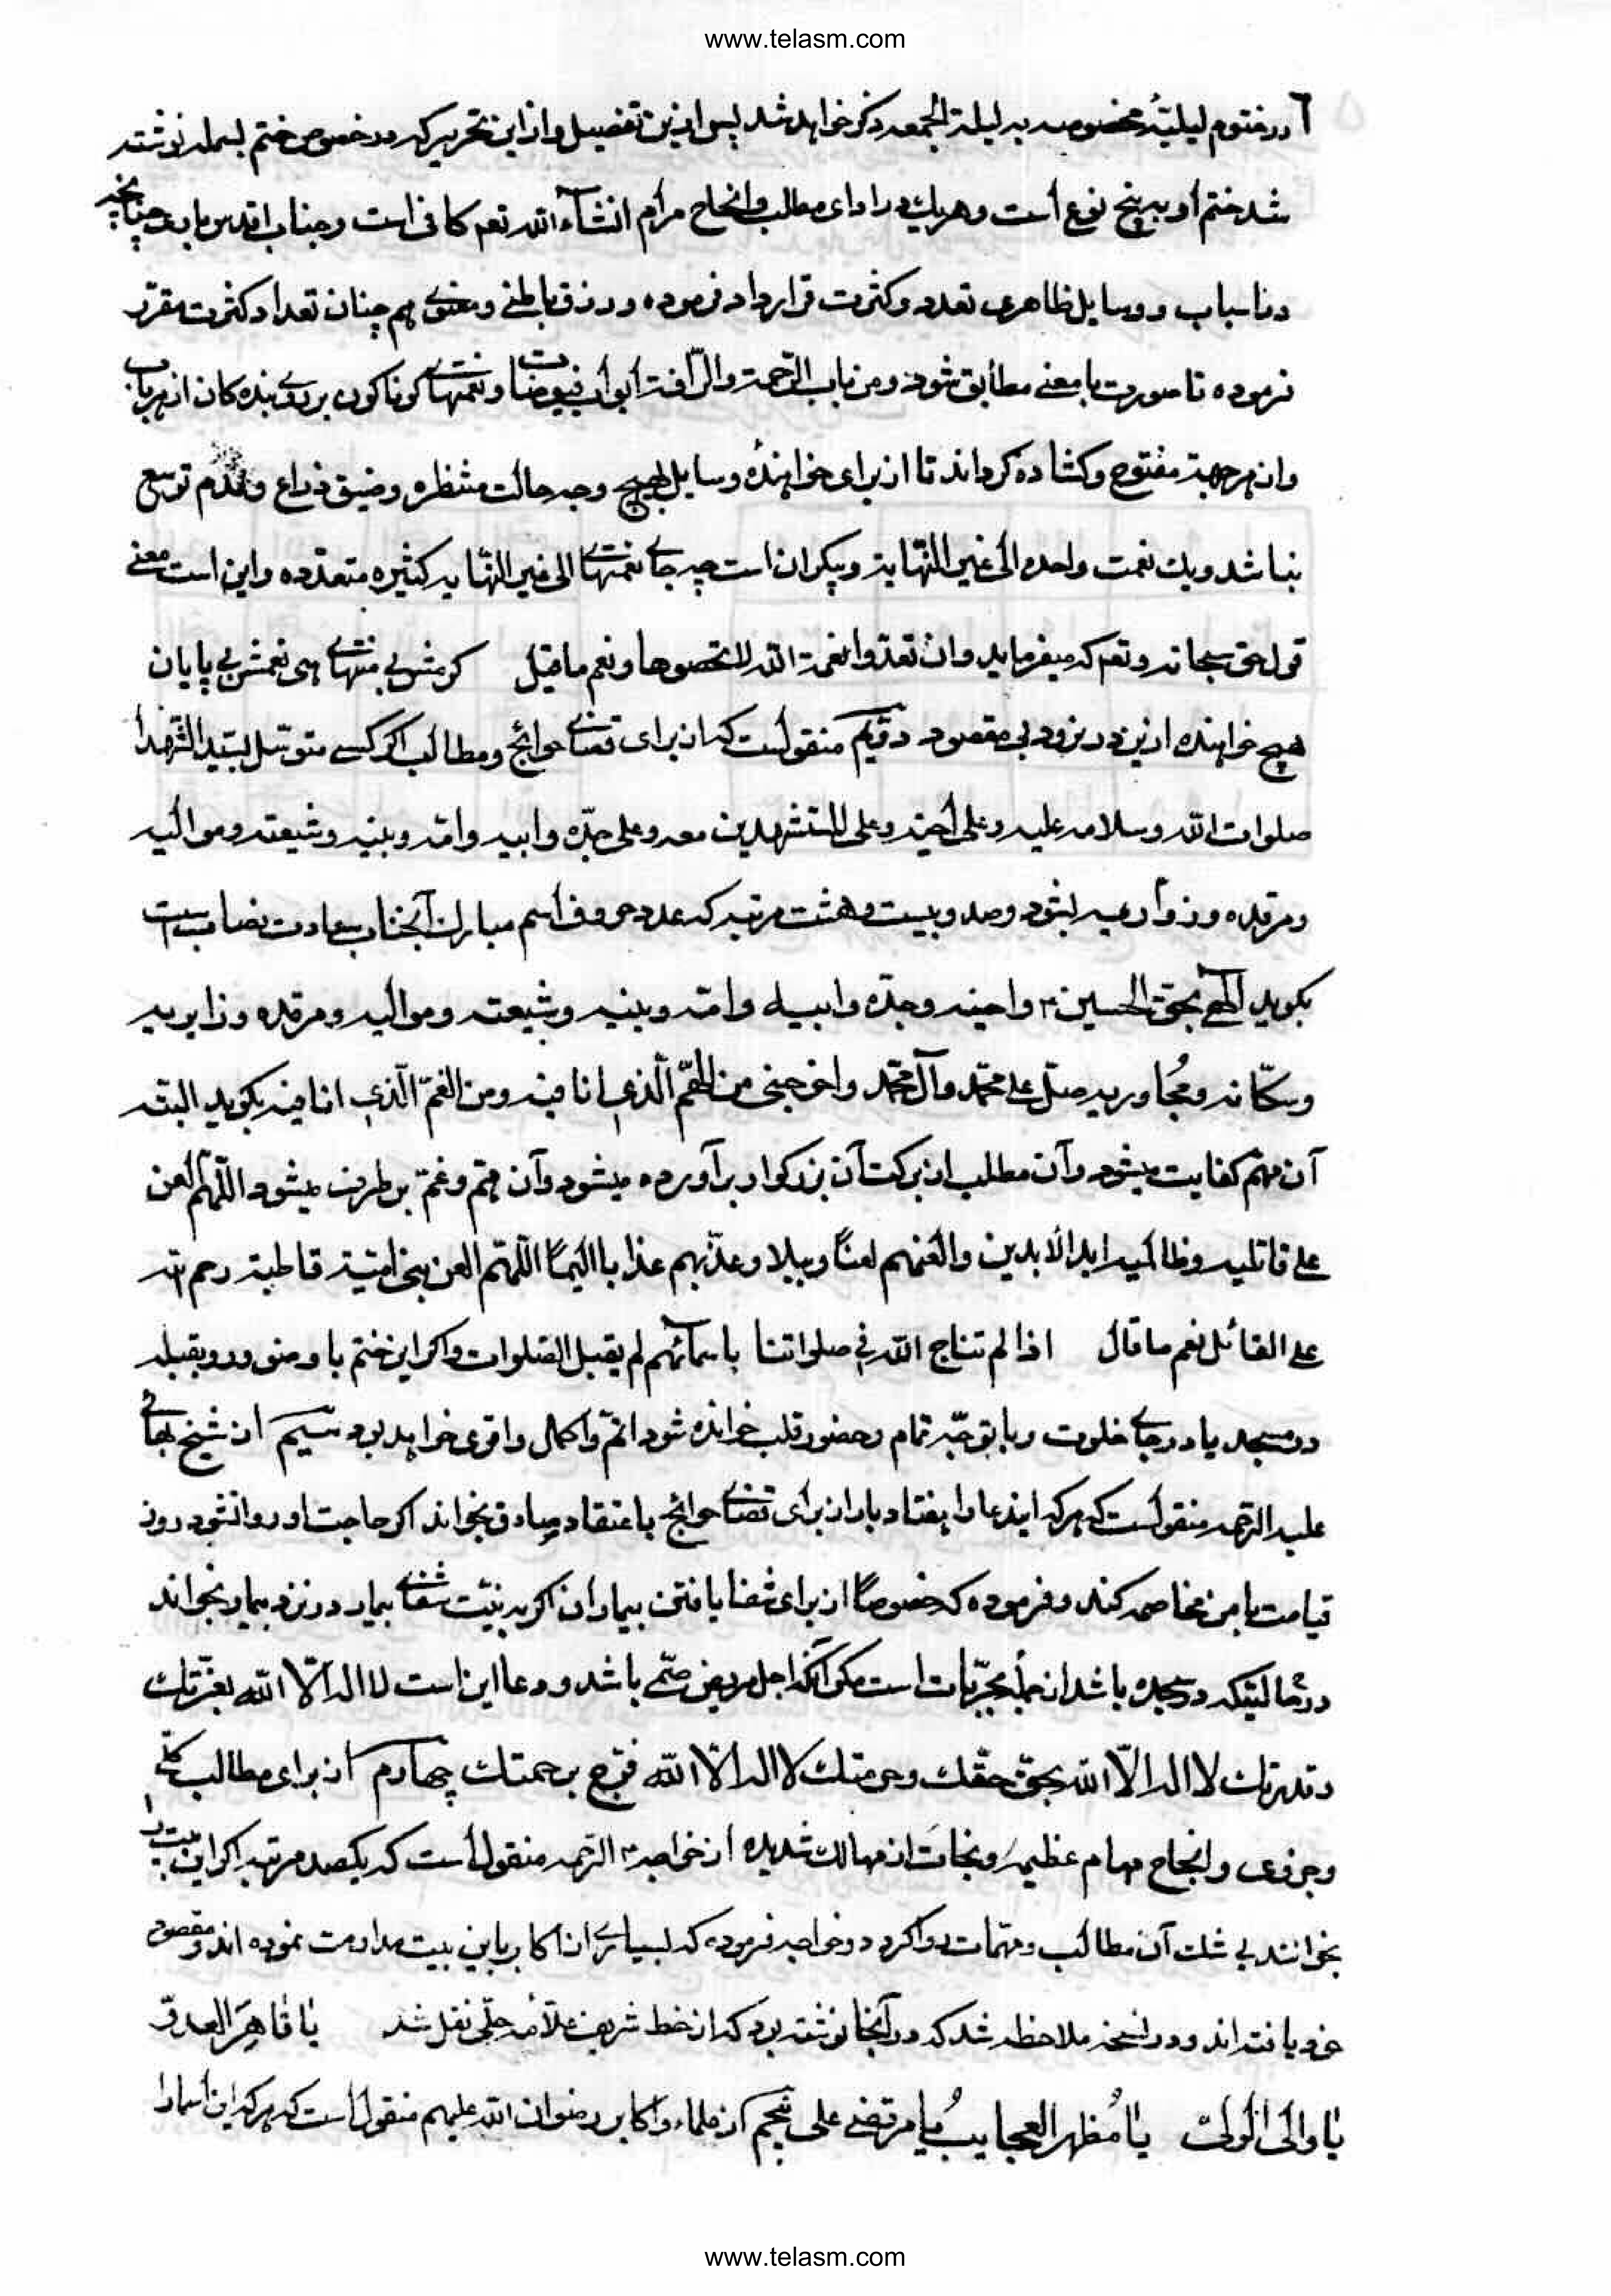 www.telasm.com
٦ در ختوم لیلیّه مخصوصه به لیلة الجمعه ذکر خواهد شد پس ازین تفصیل و از این تحریر که در خصوص ختم بسمله نوشته
شد ختم او به پنج نوع است و هر یك در ادای مطالب و انجاح مرام انشآء الله تعه کافی است و جناب اقدس باری چنانچه
در اسباب و وسایل ظاهری تعدد و کثرت قرار داد فرموده و در زق باطنی و معنوی هم چنان تعداد کثرت مقرّر
فرموده تا صورت با معنی مطابق شود و من باب الرّحمة والرّافة ابواب فیوضات و نعمتهای کوناکون بر روی بنده کان از هر باب
و از هر جهة مفتوح و کشاده کرداند تا از برای خواهندهٔ وسایل بهیچ وجه حالت منتظره و ضیق ذراع و عدم توسع
نباشد و یك نعمت واحده الی غیر النّهایة و بیکران است چه جای نعمتهای الی غیر النهایه کثیره متعدّده و این است معنی
قول حق سبحانه و تعه که میفرماید وان تعدّوا نعمة الله لا تحصوها و نعم ما قیل کرمش بی منتهای هی نعمش بی پایان
هیچ خواهنده ازین در نرود بی مقصود دوّیم منقول است که از برای قضای حوائج و مطالب اکر کسی متوسّل بسیّد الشّهدا
صلوات الله و سلامه علیه و علی اخیه و علی المستشهدین معه و علی جدّه و ابیه و امّه و بنیه و شیعته و موالیه
و مرقده و زوّاره بشود و صد و بیست و هشت مرتبه که عدد حروف اسم مبارك آنجناب سعادت نصاب است
بکوید الهی بحقّ الحسین ع و اخیه و جدّه و ابیه و امّه و بنیه و شیعته و موالیه و مرقده و زایریه
و سکّانه و مُجاوریه صلّ علی محمّد و آل محمّد واخرجنی من الهمّ الّذی انا فیه و من الغمّ الّذی انا فیه بکوید البته
آن مهمّ کفایت میشود و آن مطلب از برکت آن بزرکوار برآورده میشود و آن همّ و غمّ بر طرف میشود اللّهمّ العن
علی قاتلیه و ظالمیه ابد الابدین والعنهم لعنًا وبیلا و عذّبهم عذابا الیمًا اللّهمّ العن بنی امیّة قاطبة رحم الله
علی القائل نعم ما قال اذا لم تناج الله فی صلواتنا باسمآئهم لم یقبل الصّلوات و اکر این ختم با وضو و رو بقبله
در مسجد یا در جای خلوت و با توجّه تمام و حضور قلب خوانده شود اتمّ و اکمل و اقوی خواهد بود سّیم از شیخ بهائی
علیه الرّحمه منقول است که هر که ایندعا را هفتاد بار از برای قضای حوائج با اعتقاد صادق بخواند اکر حاجت او روا نشود روز
قیامت با من مخاصمه کند و فرموده که خصوصًا از برای شفا یافتن بیماران اکر به نیّت شفای بیمار در نزد بیمار بخواند
در حالتیکه در سجده باشد از جملهٔ مجرّبات است مکر آنکه اجل مریض حتمی باشد و دعا این است لا اله الّا الله بعزّتك
و قدرتك لا اله الّا الله بحقّ حقّك و حرمتك لا اله الّا الله فرّج برحمتك چهارم از برای مطالب کلّی
و جزوی و انجاح مهام عظیمه و نجات از مهالك شدیده از خواجه علیه الرّحمه منقول است که یکصد مرتبه اکر این بیت را
بخوانند بی شك آن مطالب و مهمّات روا کردد و خواجه فرموده که بسیاری از اکابر باین بیت مداومت نموده اند و مقصود
خود یافته اند و در نسخه ملاحظه شد که در آنجا نوشته بود که از خط شریف علّامه حلّی نقل شد یٰا قٰاهِرَ العدوّ
یٰا والی الولیّ یٰا مُظهر العجایب یا مرتضی علی پنجم از علماء و اکابر رضوان الله علیهم منقول است که هر که این اسما را
www.telasm.com